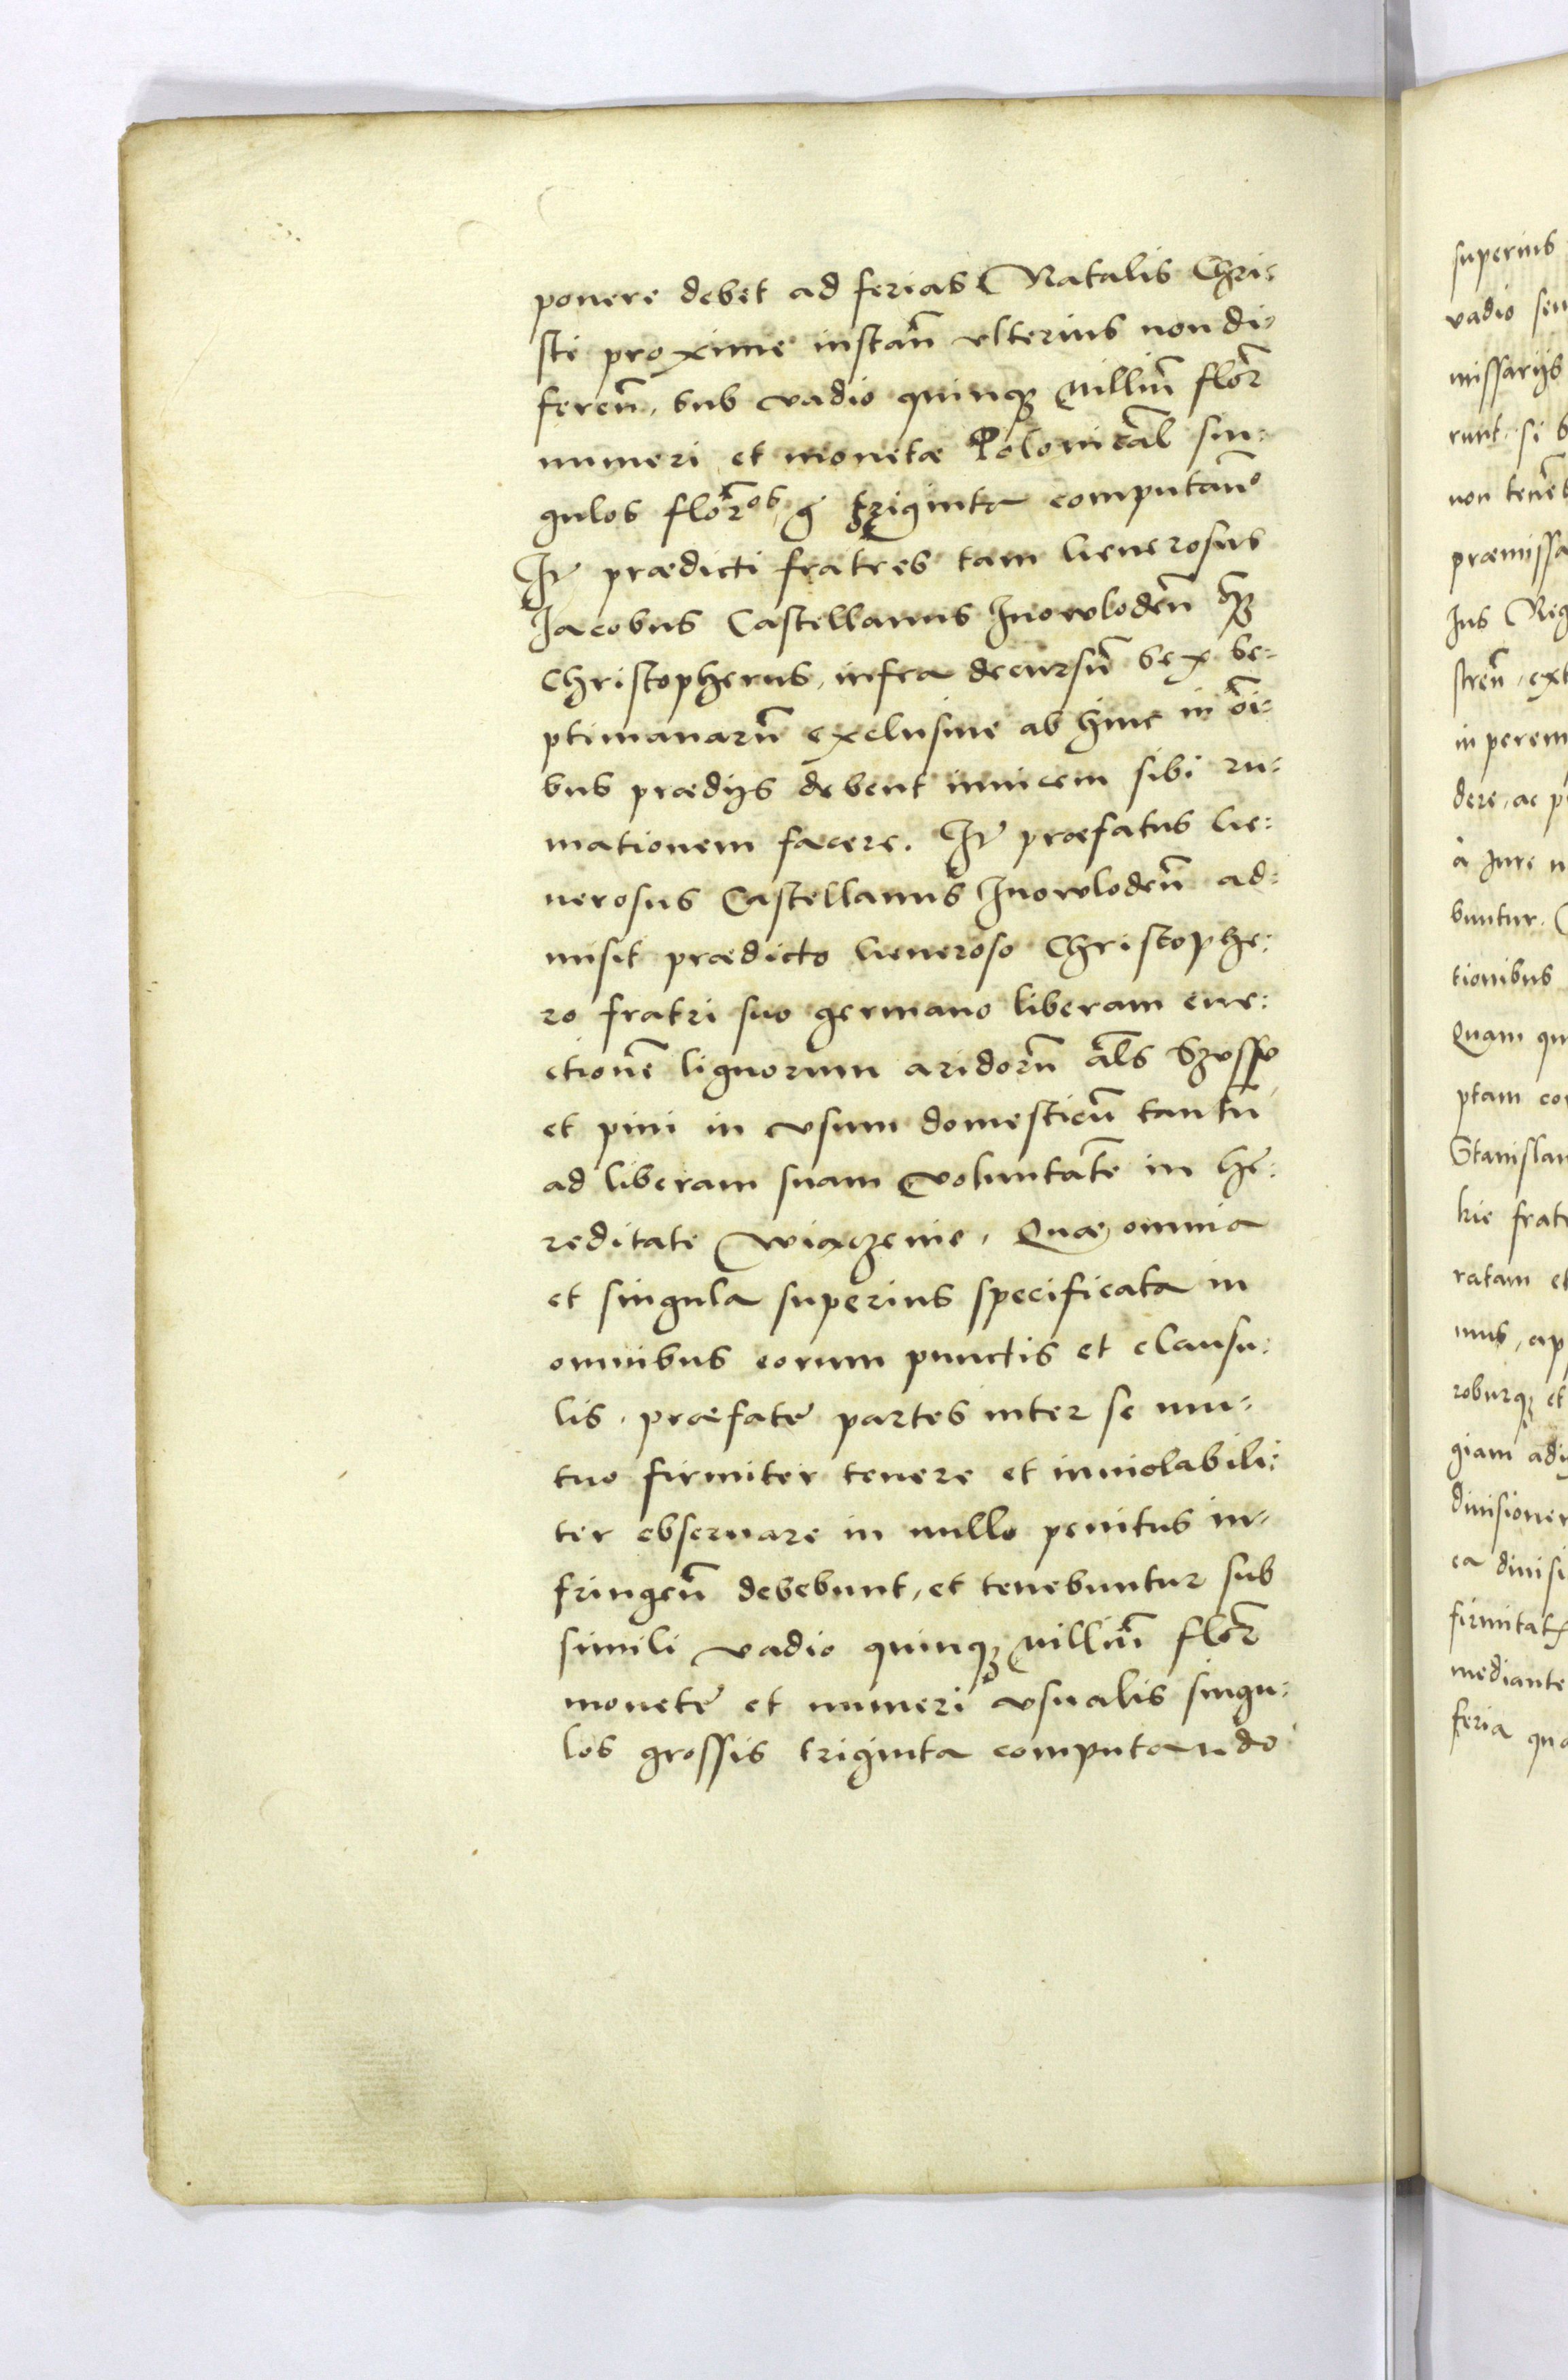 ponere debet ad ferias Natalis Chri:
sti proxime instañ vlterius non di:
fereñ, sub vadio quinq Milliũ flor̃
numeri et monetæ Polonical̃ sin:
gulos flor̃os g triginta computañ
It prædicti fratres tam Generosus
Jacobus Castellanus Inowlodeñ
Christopherus, infra decursũ sex se:
ptimanarũ exclusiue ab hinc in õi:
bus prædijs debent inuicem sibi ru:
mationem facere. It præfatus Ge:
nerosus Castellanus Inowlodeñ ad:
misit prædicto Generoso Christophe:
ro fratri suo germano liberam eue:
ctionẽ lignorum aridorũ al̃s
et pini in vsum domesticũ tantũ
ad liberam suam voluntatẽ in he:
reditate Wiaczenie, Quæ omnia
et singula superius specificata in
omnibus eorum punctis et clausu:
lis, præfate partes inter se mu:
tuo firmiter tenere et inuiolabili:
ter obseruare in nullo penitus in:
fringeñ debebunt, et tenebuntur sub
simili vadio quinq Milliũ flor̃
monete et numeri vsualis singu:
los grossis triginta computando
superius
vadio seu
missarijs
runt, si
non
præmissa
Jus Reg
streñ, ext
in perem
dere, ac
à Jure
buntur.
tionibus
Quam qu
ptam con
Stanislau
kie fratr
ratam et
mus, ap
roburq et
giam adij
diuisionem
ea diuisi
firmitat
mediante
feria qua